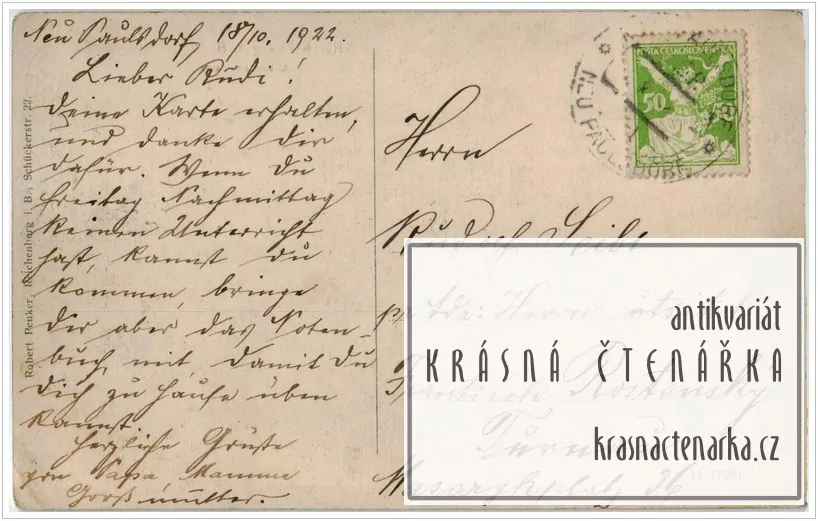 Neu Paulsdorf 18/10. 1922.
Lieber Rudi!
Deine Karte erhalten,
und danke dir
dafür. Wenn du
Freitag Nachmittag
keinen Unterricht
hast, kannst du
kommen, bringe
dir aber das Noten-
buch mit, damit du
dich zu Hause üben
kannst.
Herzliche Grüße
von Papa Mamma
Großmutter.
Robert Peuker, Reichenberg i. B., Schückerstr. 22.
POŠTA ČESKOSLOVENSKÁ
50
NEU PAULSDORF
Herrn
Rudolf Seibt
Herrn
Rostensky
Masarykplatz 36
antikvariát
KRÁSNÁ ČTENÁŘKA
krasnactenarka.cz